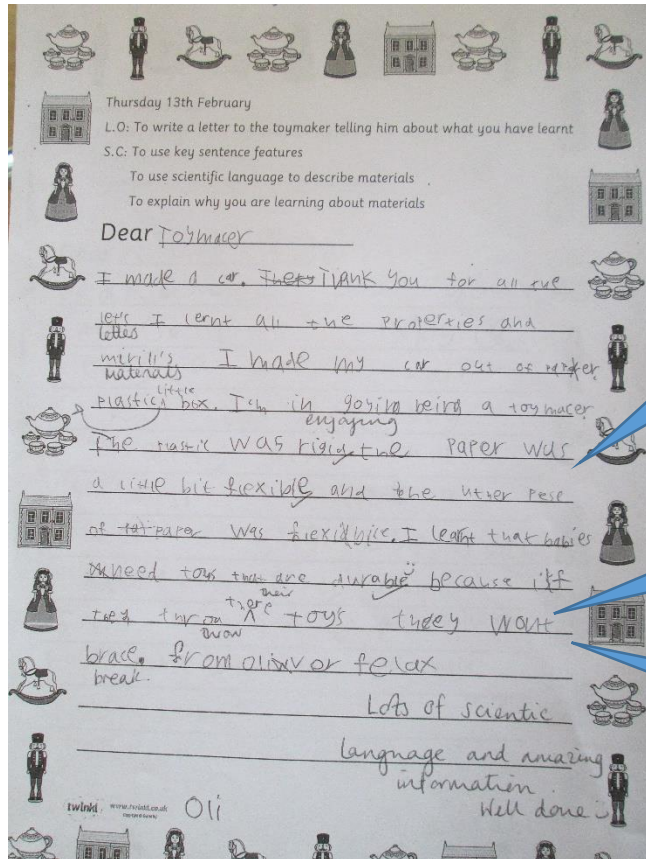 Thursday 13th February
L.O: To write a letter to the toymaker telling him about what you have learnt
S.C: To use key sentence features
To use scientific language to describe materials
To explain why you are learning about materials
Dear Toymacer
I made a car. Thank you for all the
let's I lernt all the Properties and
lettes
mirill's I made my car out of
materials
little
plastic box. I'm in goying being a toymacer
enjoying
The plastic was rigid, the paper was
a little bit flexible and the uther pese
of paper was . I learnt that babies
need toys that are durable because if
their
there
they throw toys they wont
throw
brace. from
break.
Lots of scientic
language and amazing
information.
Well done
twinkl www.twinkl.co.uk
Oli